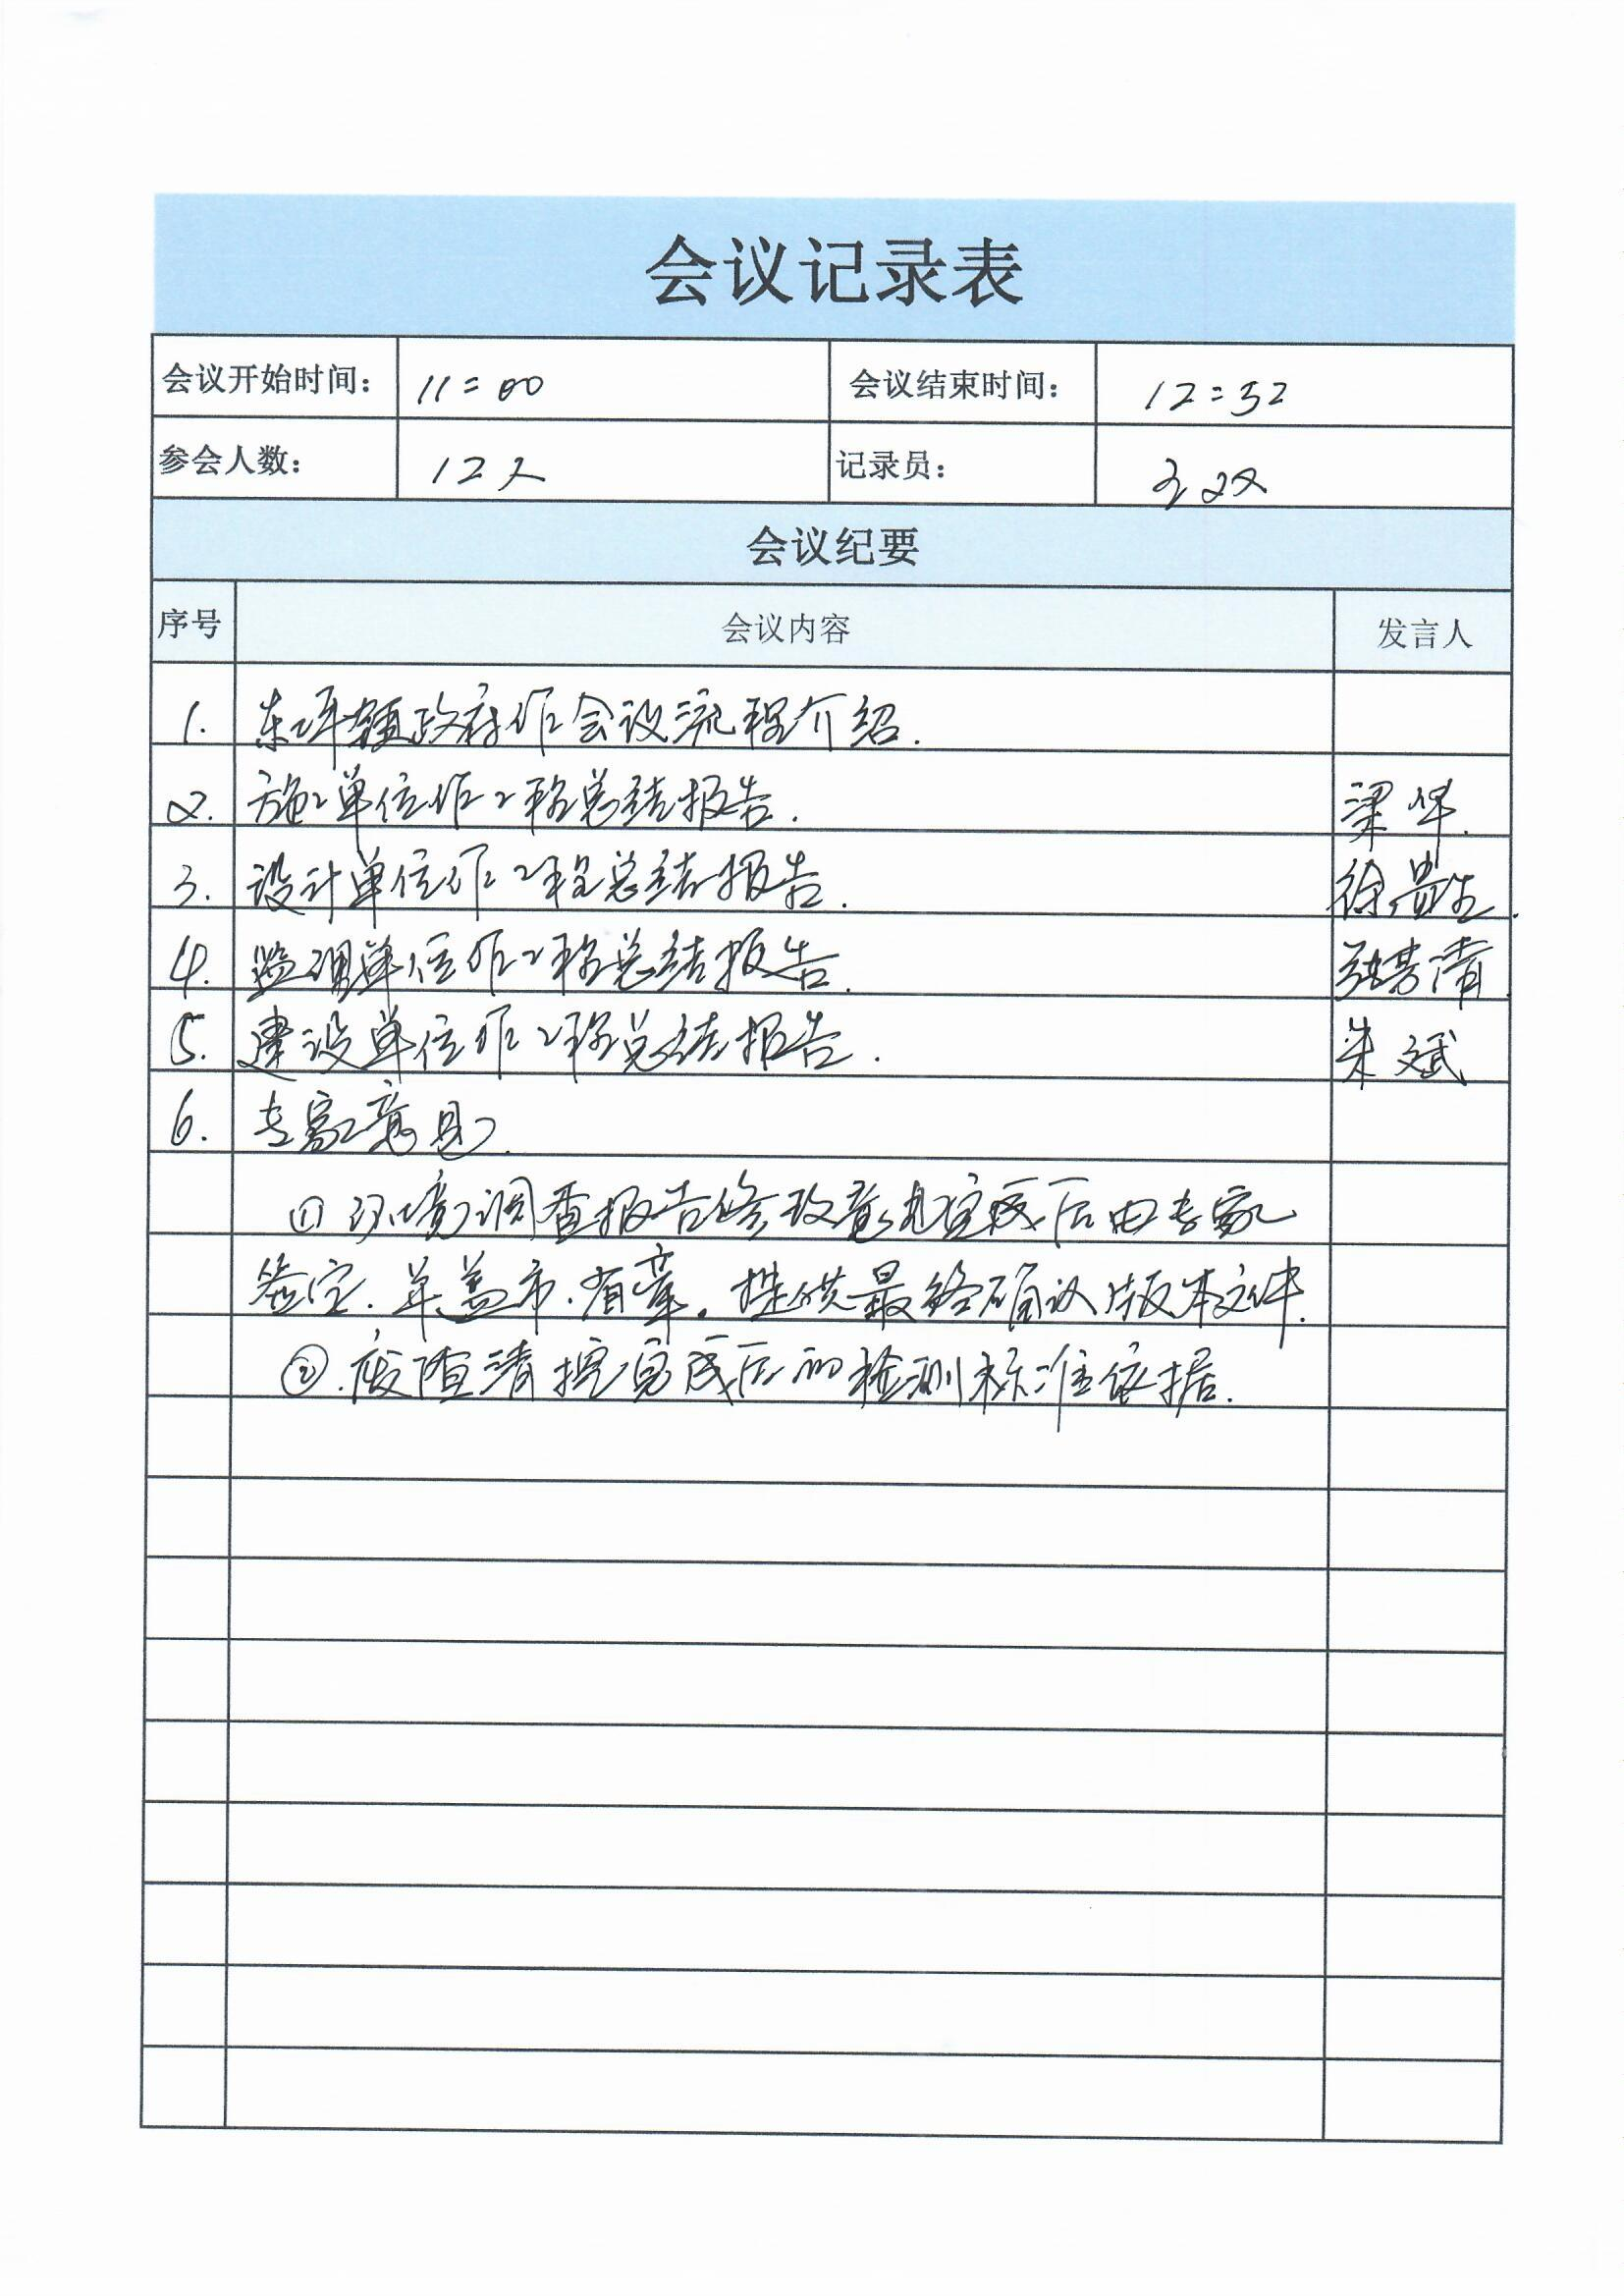 会议记录表
会议开始时间： 11:00 会议结束时间： 12:32
参会人数： 12人 记录员：
会议纪要
序号 会议内容 发言人
1. 东坪镇政府作会议流程介绍.
2. 施工单位作工程总结报告. 梁华.
3. 设计单位作工程总结报告. 徐贵生.
4. 监理单位作工程总结报告. 张芳清.
5. 建设单位作工程总结报告. 朱斌
6. 专家意见.
① 环境调查报告修改意见完成后由专家
签字. 并盖市.省章. 提供最终确认版本文件.
②. 废渣清挖完成后的检测标准依据.